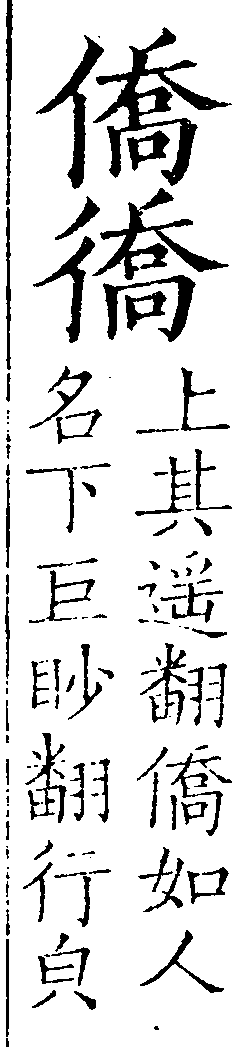 僑㣄
上其遥翻僑如人
名下巨眇翻行皃